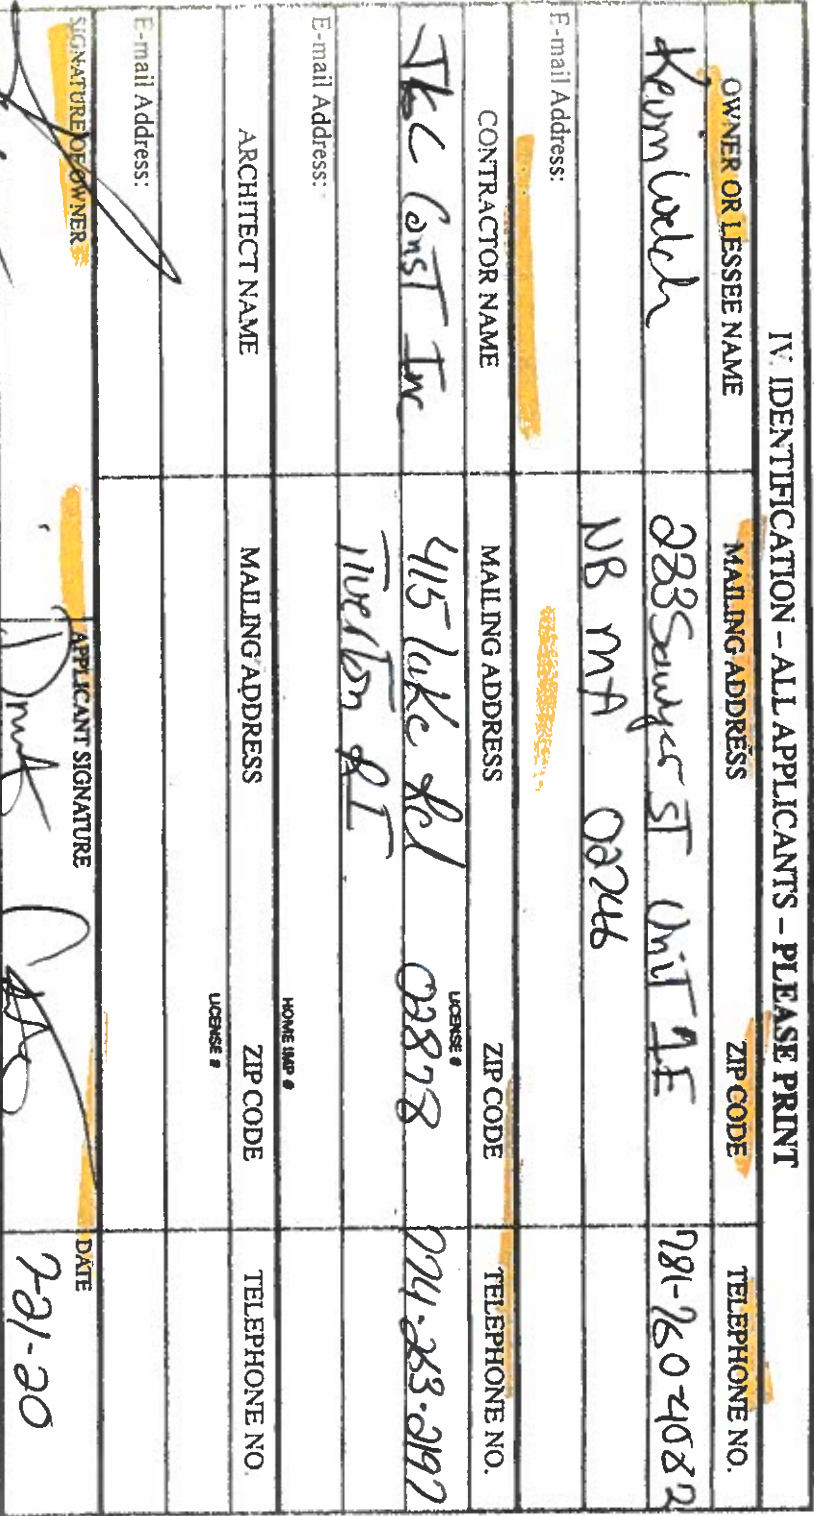 IV. IDENTIFICATION – ALL APPLICANTS – PLEASE PRINT
OWNER OR LESSEE NAME MAILING ADDRESS ZIP CODE TELEPHONE NO.
Kevin Welch 233 Sawyer ST Unit 1E 781-760-4082
NB MA 02746
E-mail Address:
CONTRACTOR NAME MAILING ADDRESS ZIP CODE TELEPHONE NO.
LICENSE #
JKL Const Inc 415 Lake Rd 02878 774-263-2197
Tiverton RI
E-mail Address:
HOME IMP #
ARCHITECT NAME MAILING ADDRESS ZIP CODE TELEPHONE NO.
LICENSE #
E-mail Address:
SIGNATURE OF OWNER APPLICANT SIGNATURE DATE
7-21-20